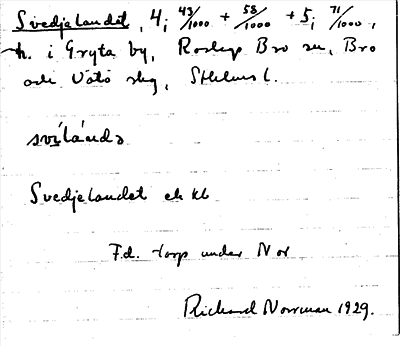 Svedjelandet, 4; 43/1000 + 58/1000 + 5; 71/1000,
h. i Gryta by, Roslags Bro sn, Bro
och Vätö skg, Sthlms l.
Svedjelandet ek kb
F.d. torp under Nor
Richard Norrman 1929.